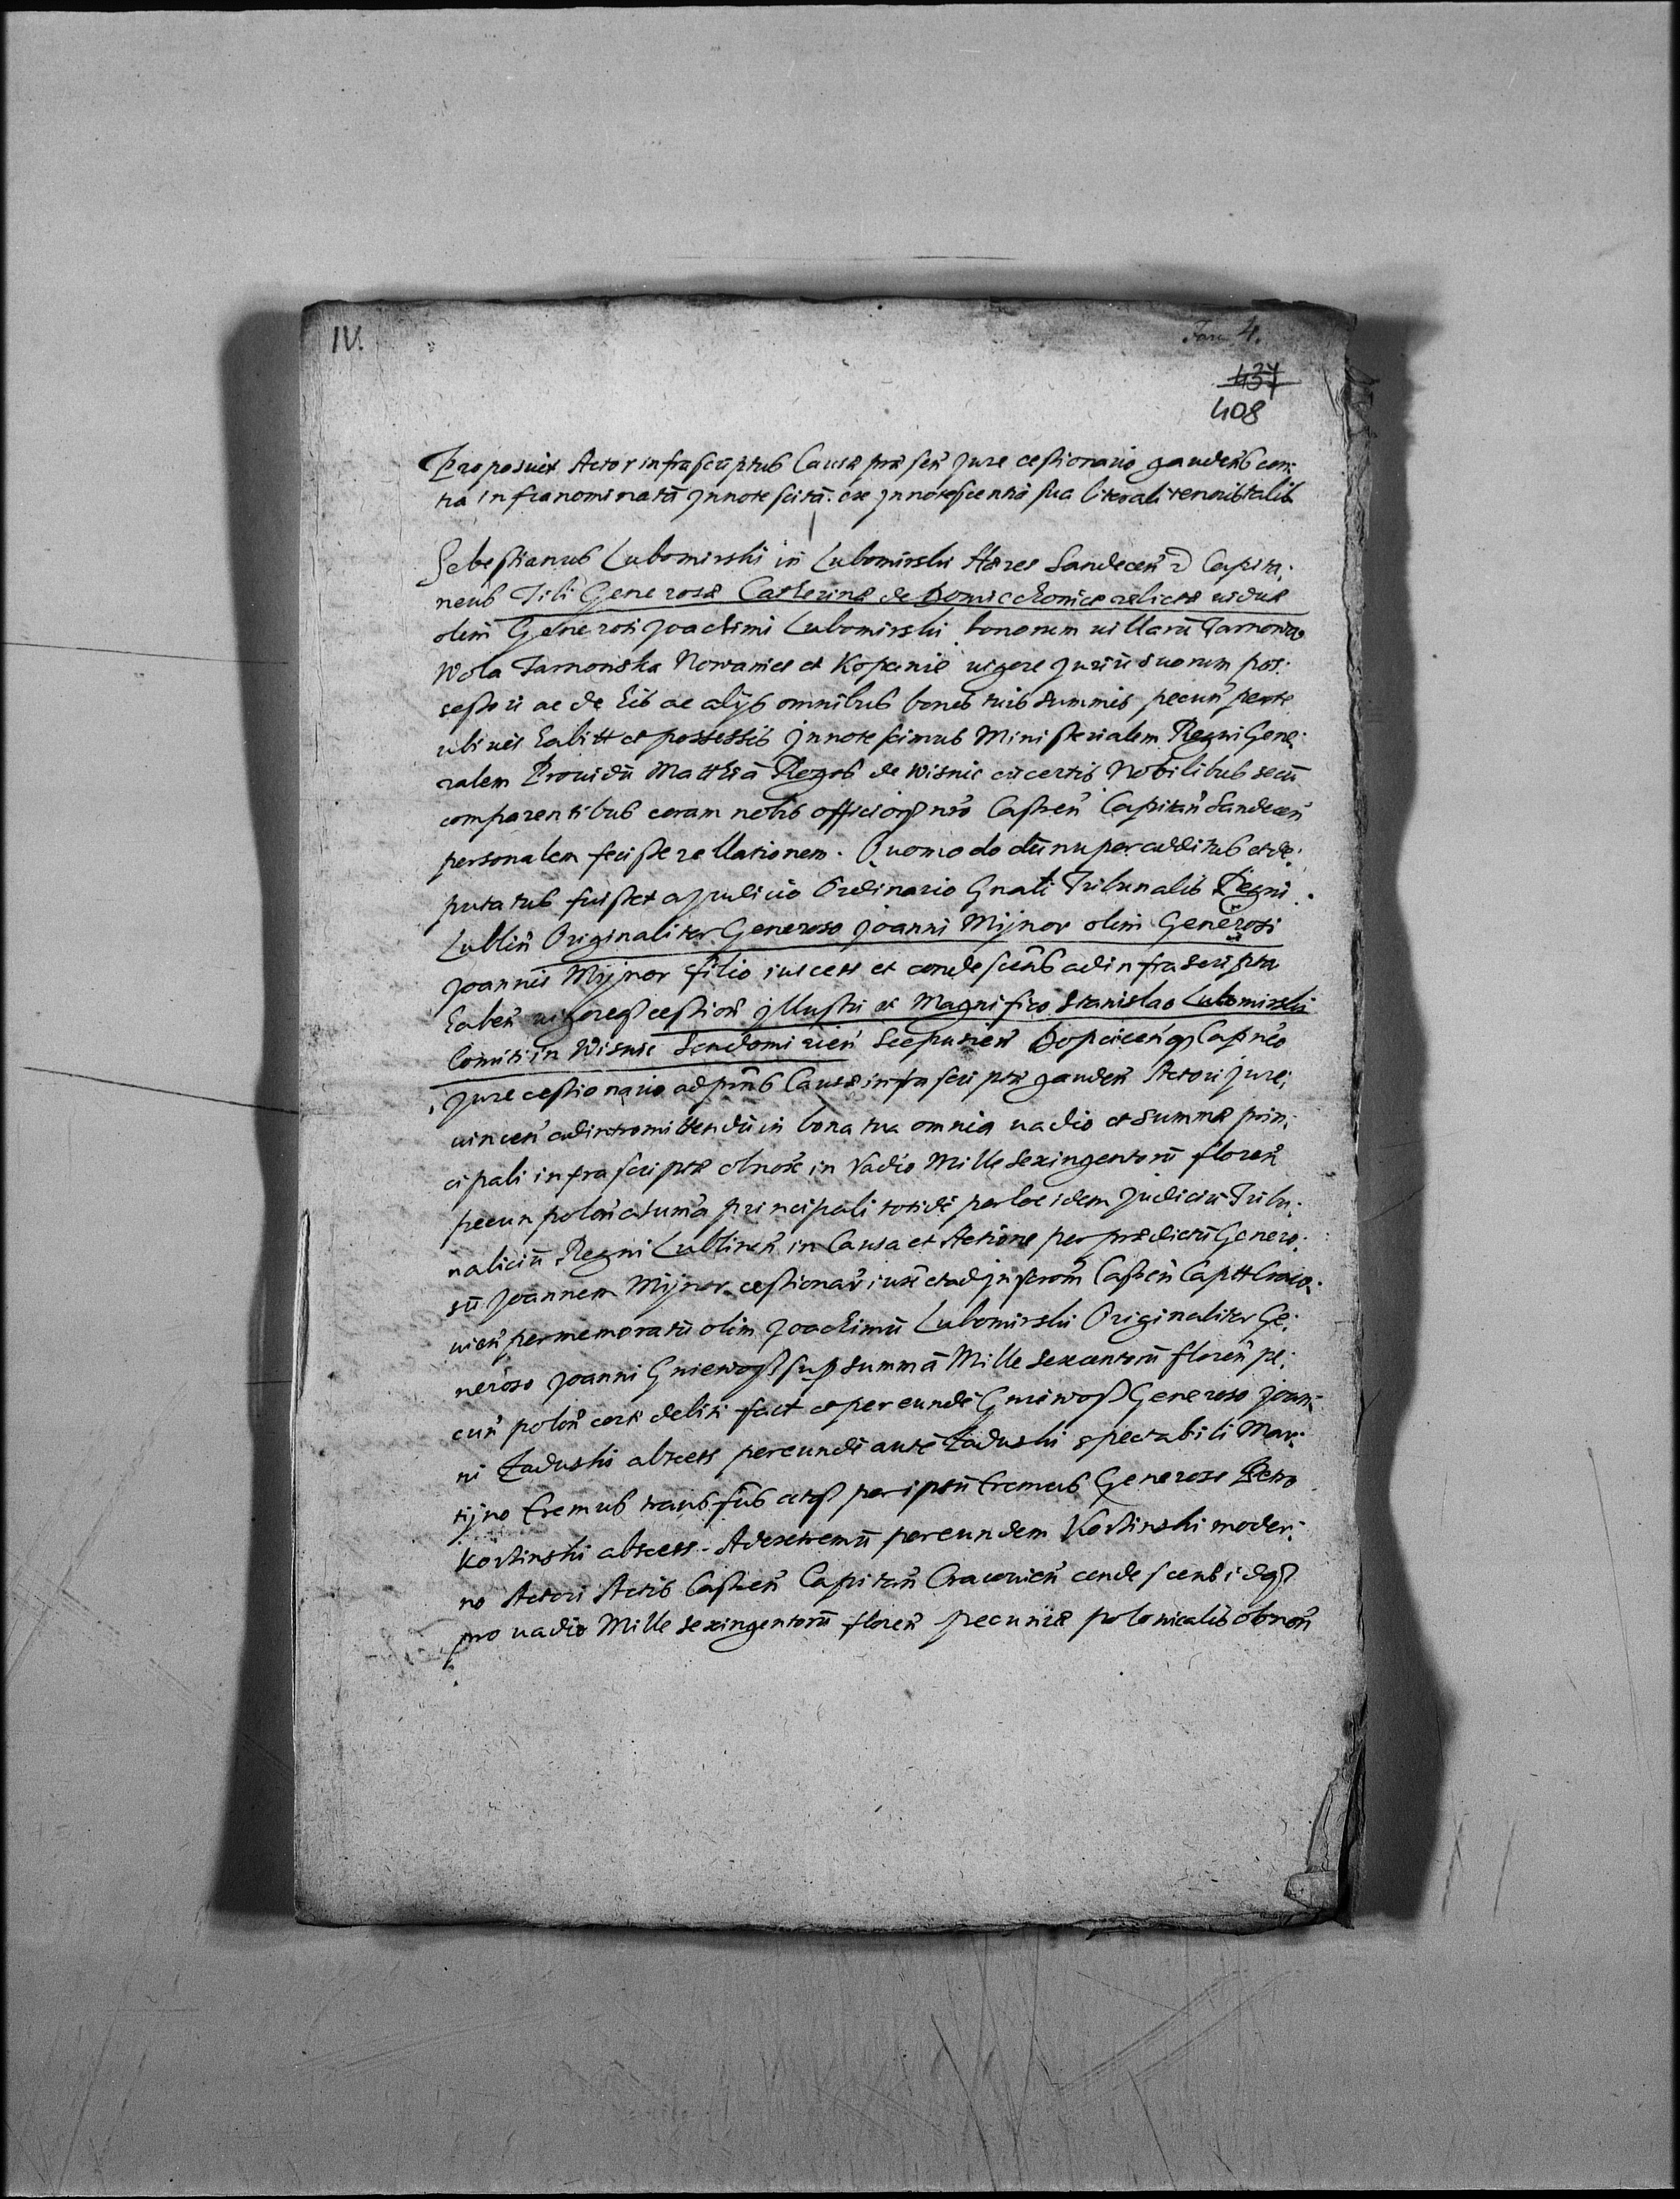 IV.
Fasc 4.
437
408
Proposuit Actor infrascriptus Causæ præsen̄ Jure cessionario gauden̄s con:
tra infranominatā Jnnotescitā. ex Jnnotescentia sua literali tenoris talis
Sebestianus Lubomirski in Lubomirzku Hæres Sandecen̄ Capita:
neus Tibi Generosæ Catherinæ de relictæ viduæ
olim Generosi Joachimi Lubomirski bonorum villarū Tarnowa
Wola Tarnowska Nowanice et Kopanie vigore Juriū suorum pos:
sessori ac de eis ac alijs omnibus bonis tuis summis pecun̄
ubivis habitt et possessis Jnnotescimus Ministerialem Regni Gene:
ralem Providū Matthiā de Wisnic cū certis Nobilibus secū
comparentibus coram nobis officioq3 nr̄o Castren̄ Capitan̄ Sandecen̄
personalem fecisse rellationem. Quomodo dū nuper additus et de:
putatus fuisset a Judicio Ordinario Gnali Tribunalis Regni
Lublin̄ Originaliter Generoso Joanni Mijnor olim Generosi
Joannis Mijnor filio succes et condescen̄s ad infrascripta
haben̄ vigoreq3 cession̄ Jllustri et Magnifico Stanislao Lubomirski
Comiti in Wisnic Sendomirien̄ Scepusien̄ Dopcicen̄q3 Capn̄eo
Jure cessionario ad prn̄s Causæ infrascriptæ gauden̄ Actori Jure:
vincen̄ ad intromittendū in bona tua omnia vadio et summæ prin:
cipali infrascriptæ obnox̄ in Vadio Mille sexingentorū floren̄
pecun polon̄ ac sum̄a principali totidē per hoc idem Judiciū Tribu:
naliciū Regni Lublinen̄ in Causa et Actione per prædictū Genero:
sū Joannem Mijnor cessionar̄ et ad Jnscrom̄ Castren̄ Captt Craco:
vien̄ per memoratū olim Joachimū Lubomirski Originaliter Ge:
neroso Joanni Gniewoss sup summā Mille sexcentorū floren̄ pe:
cun̄ polon̄ certi debiti fact et per eundē Gniewoss Generoso Joan:
ni Zaduski abcess per eundē autē Zaduski spectabili Mar:
tijno Eremus transfus atq3 per ipsū Eremus Generoso Petro
Korzinski abcess. Ad extremū per eundem Korzinski moder:
no Actori Actis Castren̄ Capitan̄ Cracovien̄ condescens idq3
pro vadio Mille sexingentorū floren̄ pecuniæ polonicalis obnox̄